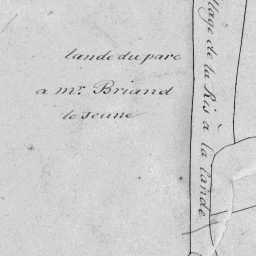 lande du parc
a mr. Briand
le jeune
llage de la Ris à la lande